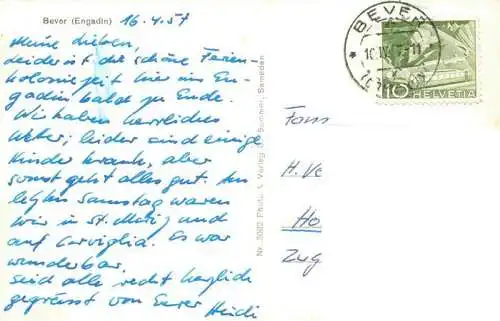 Bever (Engadin) 16.4.57
Meine Lieben,
leider ist die schöne Ferien-
koloniezeit hier im En-
gadin bald zu Ende.
Wir haben herrliches
Wetter; leider sind einige
Kinder krank, aber
sonst geht alles gut. Am
letzten Samstag waren
wir in St. Moritz und
auf Corviglia. Es war
wunderbar.
Seid alle recht herzlich
gegrüsst von Eurer Heidi
Nr. 5082 Photo u. Verlag Sommer, Samedan
BEVER
10 HELVETIA
Fam
H. Ve
Ho
Zug